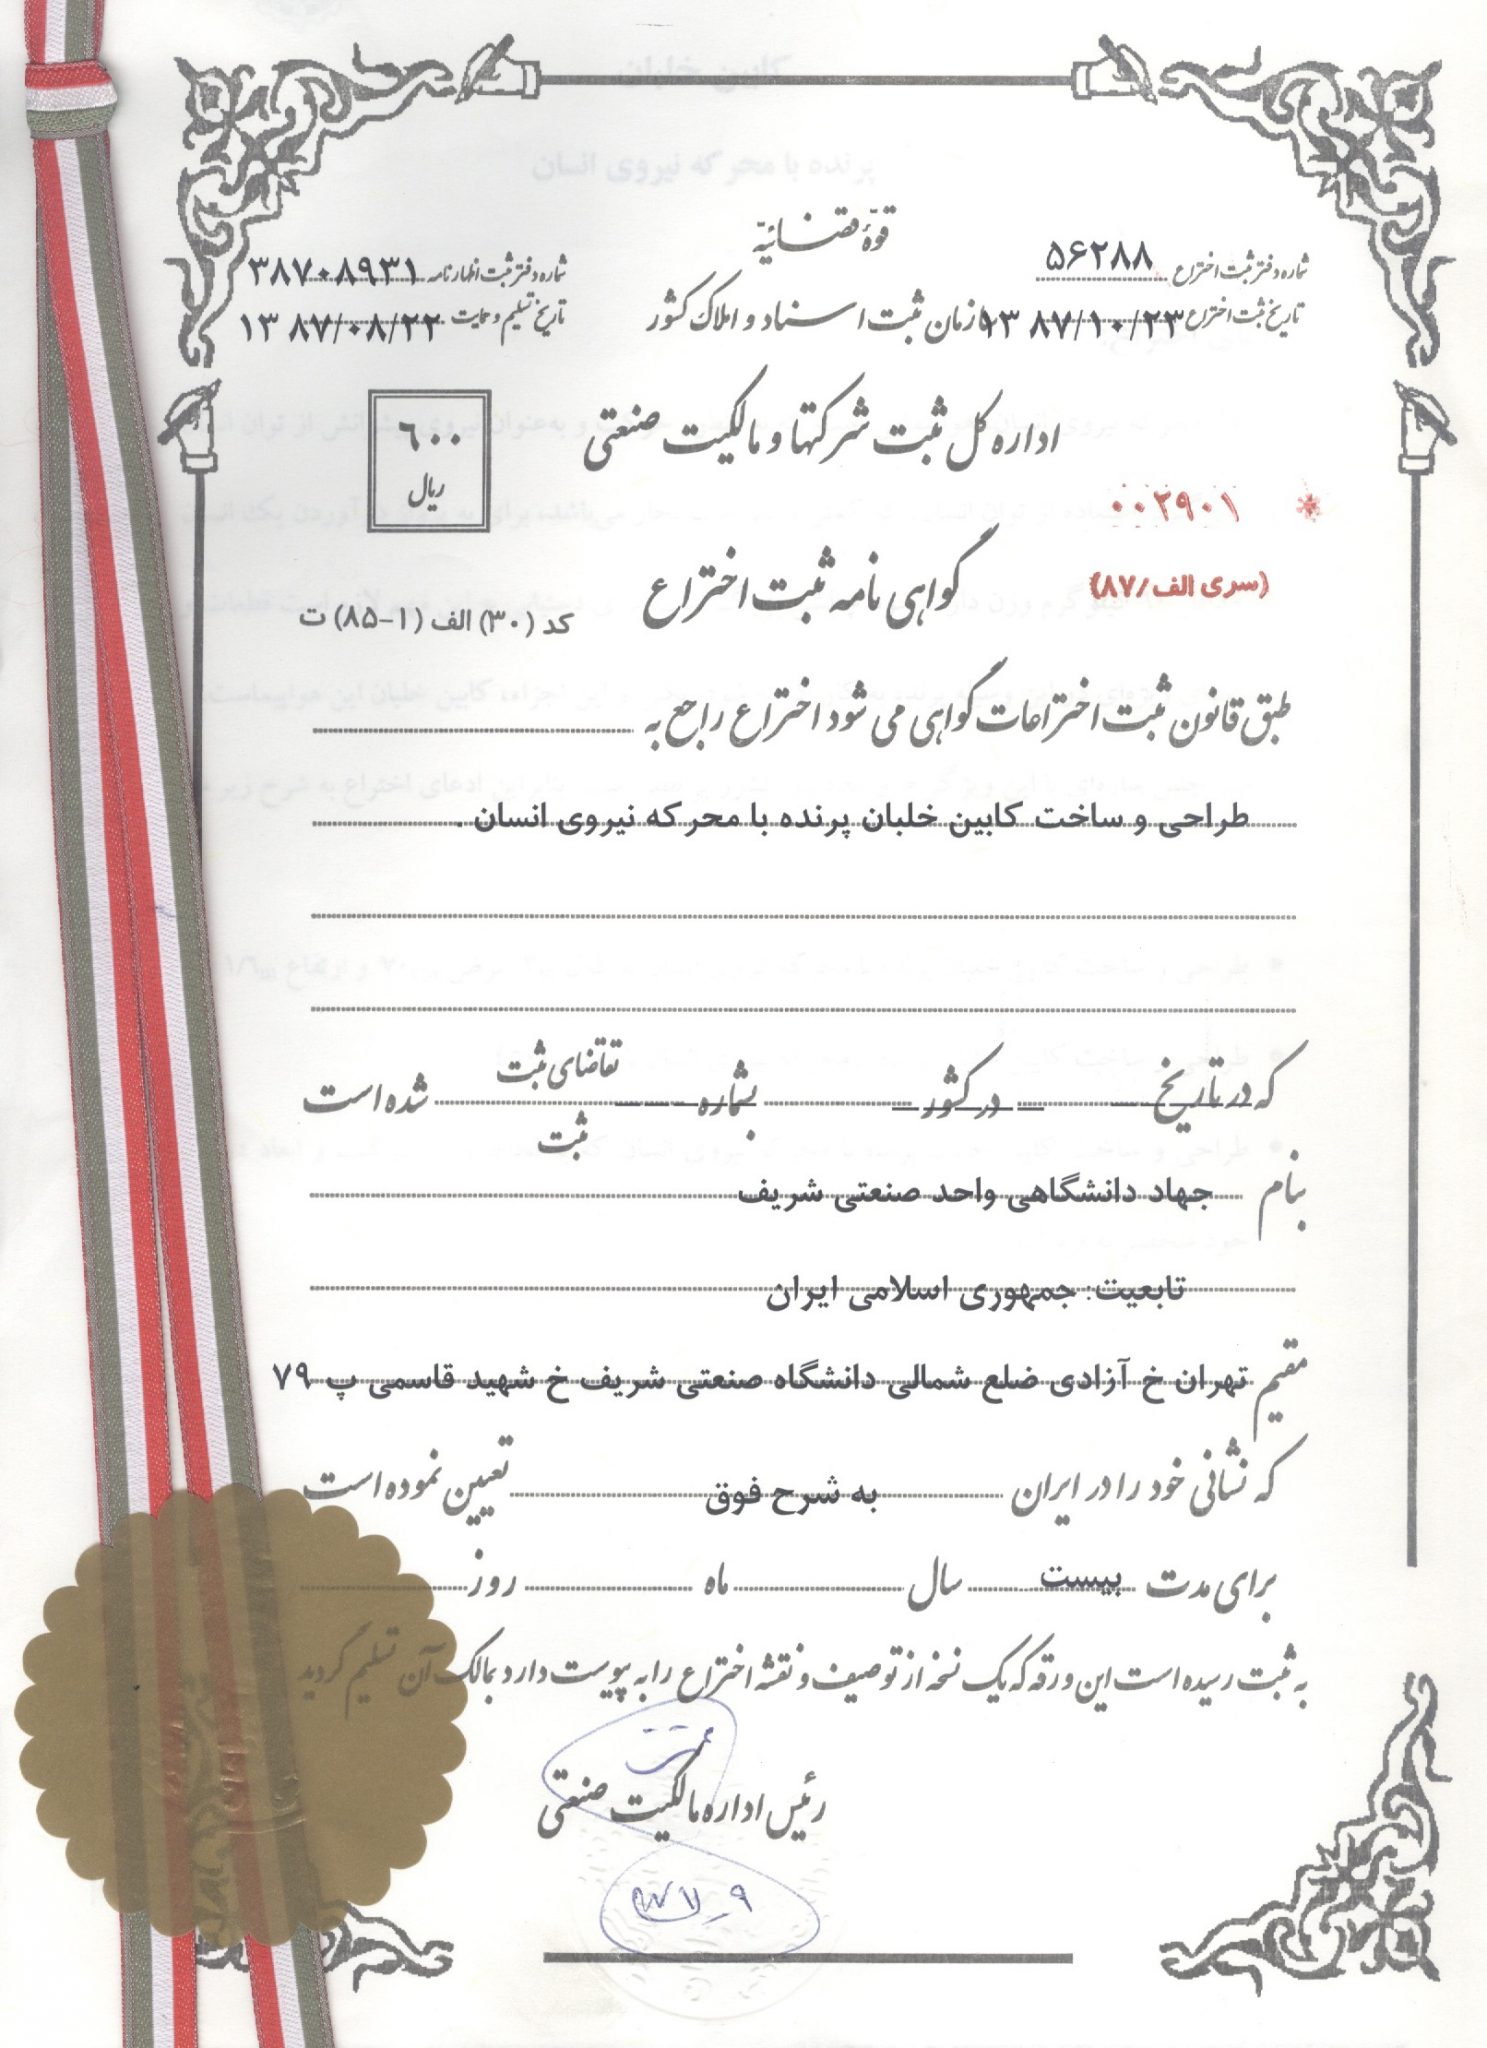 قوّهٔ قضائیّه
شماره دفتر ثبت اختراع ۵۶۲۸۸
شماره دفتر ثبت اظهارنامه ۳۸۷۰۸۹۳۱
تاریخ ثبت اختراع ۱۳۸۷/۱۰/۲۳
سازمان ثبت اسناد و املاک کشور
تاریخ تسلیم و حمایت ۱۳۸۷/۰۸/۲۲
اداره کل ثبت شرکتها و مالکیت صنعتی
۶۰۰
ریال
۰۰۲۹۰۱ *
(سری الف/۸۷)
گواهی نامه ثبت اختراع
کد (۳۰) الف (۱-۸۵) ت
طبق قانون ثبت اختراعات گواهی می شود اختراع راجع به
طراحی و ساخت کابین خلبان پرنده با محرکه نیروی انسان .
که در تاریخ در کشور بشماره تقاضای ثبت شده است
ثبت
بنام جهاد دانشگاهی واحد صنعتی شریف
تابعیت: جمهوری اسلامی ایران
مقیم تهران خ آزادی ضلع شمالی دانشگاه صنعتی شریف خ شهید قاسمی پ ۷۹
که نشانی خود را در ایران به شرح فوق تعیین نموده است
برای مدت بیست سال ماه روز
به ثبت رسیده است این ورقه که یک نسخه از توصیف و نقشه اختراع را به پیوست دارد بمالک آن تسلیم گردید
رئیس اداره مالکیت صنعتی